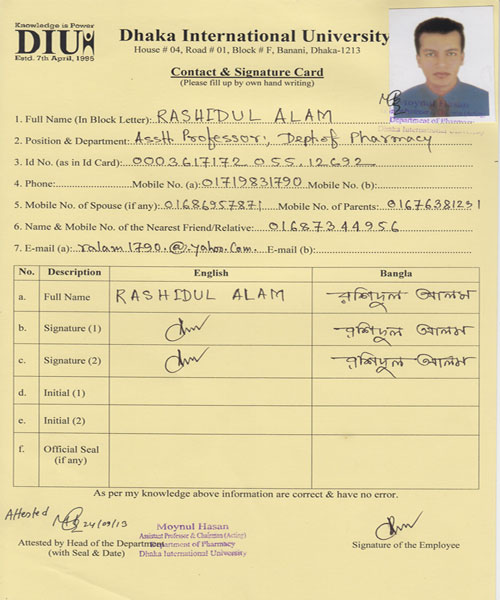 Knowledge is Power
DIU
Estd. 7th April, 1995
Dhaka International University
House # 04, Road # 01, Block # F, Banani, Dhaka-1213
Contact & Signature Card
(Please fill up by own hand writing)
Moynul Hasan
Department of Pharmacy
Dhaka International University
1. Full Name (In Block Letter): RASHIDUL ALAM
2. Position & Department: Asstt Professor, Dept of Pharmacy
3. Id No. (as in Id Card): 0003617172 055.12692
4. Phone: Mobile No. (a): 01719831790 Mobile No. (b):
5. Mobile No. of Spouse (if any): 01686957871 Mobile No. of Parents: 01676381231
6. Name & Mobile No. of the Nearest Friend/Relative: 01687344956
7. E-mail (a): ralam1790.@.yahoo.Com. E-mail (b):
No. Description English Bangla
a. Full Name RASHIDUL ALAM রশিদুল আলম
b. Signature (1) রশিদুল আলম
c. Signature (2) রশিদুল আলম
d. Initial (1)
e. Initial (2)
f. Official Seal
(if any)
As per my knowledge above information are correct & have no error.
Attested 24/09/13
Moynul Hasan
Assistant Professor & Chairman (Acting)
Department of Pharmacy
Dhaka International University
Attested by Head of the Department
(with Seal & Date)
Signature of the Employee